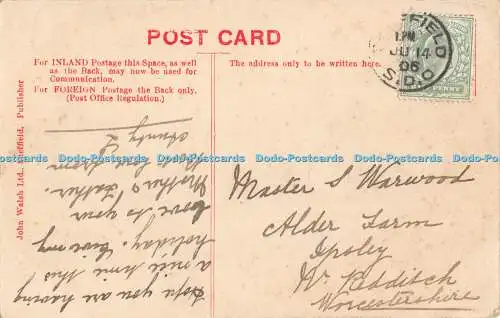 POST CARD
For INLAND Postage this Space, as well
as the Back, may now be used for
Communication.
For FOREIGN Postage the Back only.
(Post Office Regulation.)
The address only to be written here.
John Walsh Ltd., Sheffield, Publisher
FFIELD
JU 14
06
S.D.O
PENNY
Hope you are having
a nice time this
holiday. Give my
love to your
Mother & Father.
from
Aunty L
Master S Warwood
Alder Farm
Ipsley
Nr Redditch
Worcestershire
Dodo-Postcards Dodo-Postcards Dodo-Postcards Dodo-Postcards Dodo-Postcards